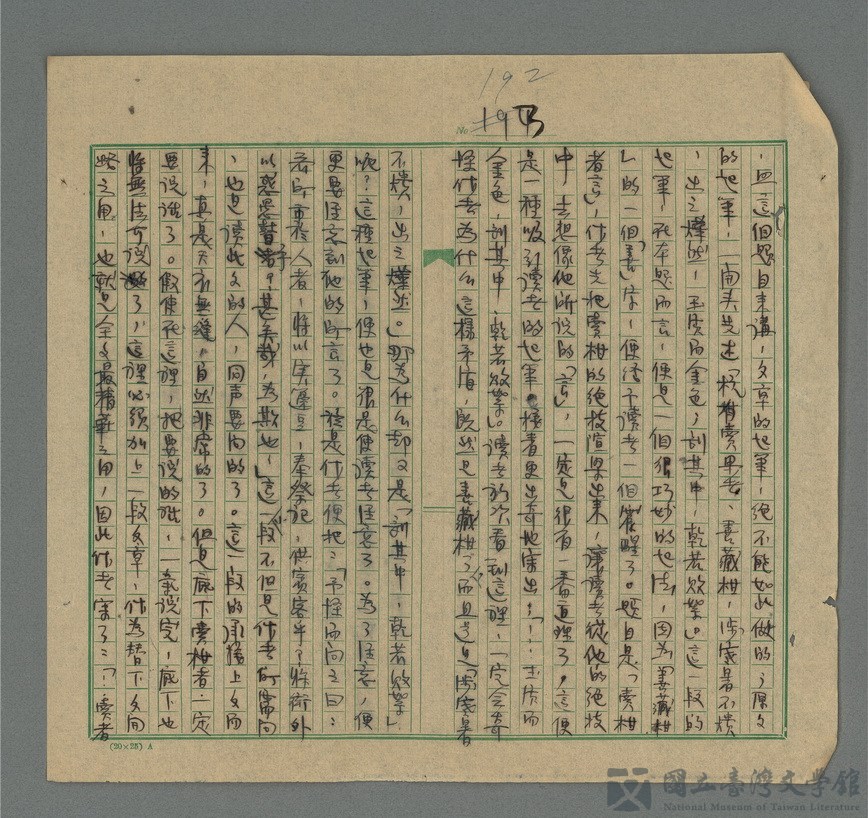 192
No. 19
,照這個題目來講,文章的起筆,絕不能如此做的,原文
的起筆,一開头先述「杭有賣果者,善藏柑,涉寒暑不潰
,出之燁然,玉质而金色,剖其中,乾若敗絮。」這一段的
起筆,在本題而言,便是一個很巧妙的起法,因為「善藏柑
」的一個「善」字,便給予讀者一個提醒了。題目是「賣柑
者言」,作者先把賣柑的絕技渲染出來,讓讀者從他的絕技
中,去想像他所說的「言」,一定是很有一番道理了,這便
是一種吸引讀者的起筆。接着更出奇地寫出:「玉质而
金色,剖其中,乾若敗絮。」讀者於次看到這裡,一定会奇
怪作者為什么這樣矛盾,既然是善藏柑,而且是「涉寒暑
不潰,出之燁然。」那為什么却又是「剖其中,乾若敗絮」
呢?這種起筆,便也是很是使讀者注意了。為了注意,便
更要注意到他的所言了。於是作者便把:「予怪而问之曰:
若所市於人者,将以实籩豆,奉祭祀,供賓客乎?将衒外
以惑愚瞽乎?甚矣哉,為欺也。」這一段不但是作者所需问
,也是讀此文的人,同声要问的了。這一段的承接上文而
來,真是天衣無縫,自然非常的了。但是底下賣柑者一定
要說話了。假使在這裡,把要說的話,一氣說完,底下也
将無法可說了,這裡必須加上一段文章,作為替下文開
路之用,也就是全文最精華之用,因此作者寫了:「賣者
(20×25) A
國立臺灣文学館
National Museum of Taiwan Literature